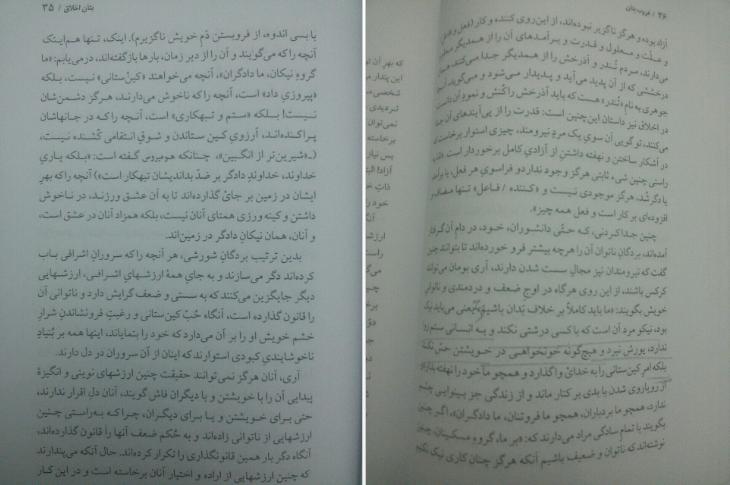 ۳۵ / بنان اخلاق
یا بسی اندوه، از فروبستن دَمِ خویش ناگزیرم). اینک، تنها هم‌اینک
آنچه را که می‌گویند و آن را از دیر زمان، بارها بازگفته‌اند، درمی‌یابم: «ما
گروهِ نیکان، ما دادگران»، آنچه می‌خواهند «کین‌ستانی» نیست، بلکه
«پیروزیِ داد» است، آنچه را که ناخوش می‌دارند، هرگز دشمن‌شان
نیست! بلکه «ستم و تبهکاری» است، آنچه را که در جانهاشان
پراکنده‌اند، آرزویِ کین ستاندن و شوقِ انتقامی کُشنده نیست،
(ـ«شیرین‌تر از انگبین»، چنانکه هومروس گفته است: «بلکه یاریِ
خداوند، خداوندِ دادگر بر ضدِّ بداندیشان تبهکار است») آنچه که بهرِ
ایشان در زمین بر جای گذارده‌اند تا به آن عشق ورزند، در ناخوش
داشتن و کینه ورزی همتای آنان نیست، بلکه همزاد آنان در عشق است،
و آنان، همان نیکانِ دادگر در زمین‌اند.
بدین ترتیب بردگانِ شورشی، هر آنچه را که سرورانِ اشرافی باب
کرده‌اند دگر می‌سازند و به جایِ همهٔ ارزشهایِ اشرافی، ارزشهایی
دیگر جایگزین می‌کنند که به سستی و ضعف گرایش دارد و ناتوانی آن
را قانون گذارده است، آنگاه حُبِّ کین‌ستانی و رغبتِ فرونشاندنِ شرارِ
خشمِ خویش او را بر آن می‌دارد که خود را بنمایاند، اینها همه بر بُنیادِ
ناخوشایندیِ کبودی استوارند که اینان از آن سروران در دل دارند.
آری، آنان هرگز نمی‌توانند حقیقت چنین ارزشهایِ نوینی و انگیزهٔ
پیداییِ آن را با خویش و با دیگران فاش گویند، آنان دلِ اقرار ندارند،
حتی برای خویشتن و یا برای دیگران، چراکه به‌راستی چنین
ارزشهایی از ناتوانی زاده‌اند و به حُکم ضعف آنها را قانون گذارده‌اند،
آنگاه دگر بار همین قانونگذاری را تکرار کرده‌اند. حال آنکه می‌پندارند
که چنین ارزشهایی از اراده و اختیار آنان برخاسته است و در این کار
۳۶ / غروب بتان
آزاد بوده و هرگز ناگزیر نبوده‌اند، از این روی کننده و کار (فعل و فاعل)
و علّت و معلول و قدرت و برآمدهای آن را از همدیگر
می‌دارند، سردم تُندر و آذرخش را از همدیگر جدا می‌کنند،
درخششی که از آن پدید می‌آید و پدیدار می‌شود و می‌گویند
جوهری به نام «تُندر» هست که باید آذرخش را کُنش و نمودِ آن دانست
در اخلاق نیز داستان این‌چنین است: قدرت را از پی‌آیندهای آن جدا
می‌کنند، تو گویی آن سویِ یک مردِ نیرومند، چیزی استوار برخاست
در آشکار ساختن و نهفته داشتنِ از آزادیِ کامل برخوردار است
راستی چنین شیء ثابتی هرگز وجود ندارد و فراسویِ هر فعل، یا برآمد
یا دگر شُد، هرگز موجودی نیست و «کننده / فاعل» تنها مضاف و
افزوده‌ای بر کار است و فعل همه چیز».
چنین جداکردنی، که حتّی دانشوران، خود، در دام آن گرفتار
آمده‌اند، بردگان ناتوان آن را هرچه بیشتر فرو خورده‌اند تا بتوانند چنین
گفت که نیرومندان نیز مجالِ سست شدن دارند، آری بومان می‌توانند
کرکس باشند، از این روی هرگاه در اوجِ ضعف و دردمندی و ناتوانیِ
خویش بگویند: «ما باید کاملاً بر خلافِ بَدان باشیم» یعنی می‌باید نیک
بود، نیکو مردِ آن است که با کسی درشتی نکند و به انسانی ستم روا
ندارد، یورش نبرد و هیچ‌گونه خونخواهی در خویشتن حسّ نکند
بلکه امرِ کین‌ستانی را به خدای واگذارد و همچو ما خود را نهفته بدارد
از رویاروی شدن با بدی بر کنار ماند و از زندگی جز بینوایی چشم
ندارد، همچو ما بردباران، همچو ما فروتنان، ما دادگران»، اگر چنین
بگویند با تمامِ سادگی مراد می‌دارند که: «بر ما، گروه مسکینان، چنین
نوشته‌اند که ناتوان و ضعیف باشیم آنکه هرگز چنان کاری نیک نکنیم